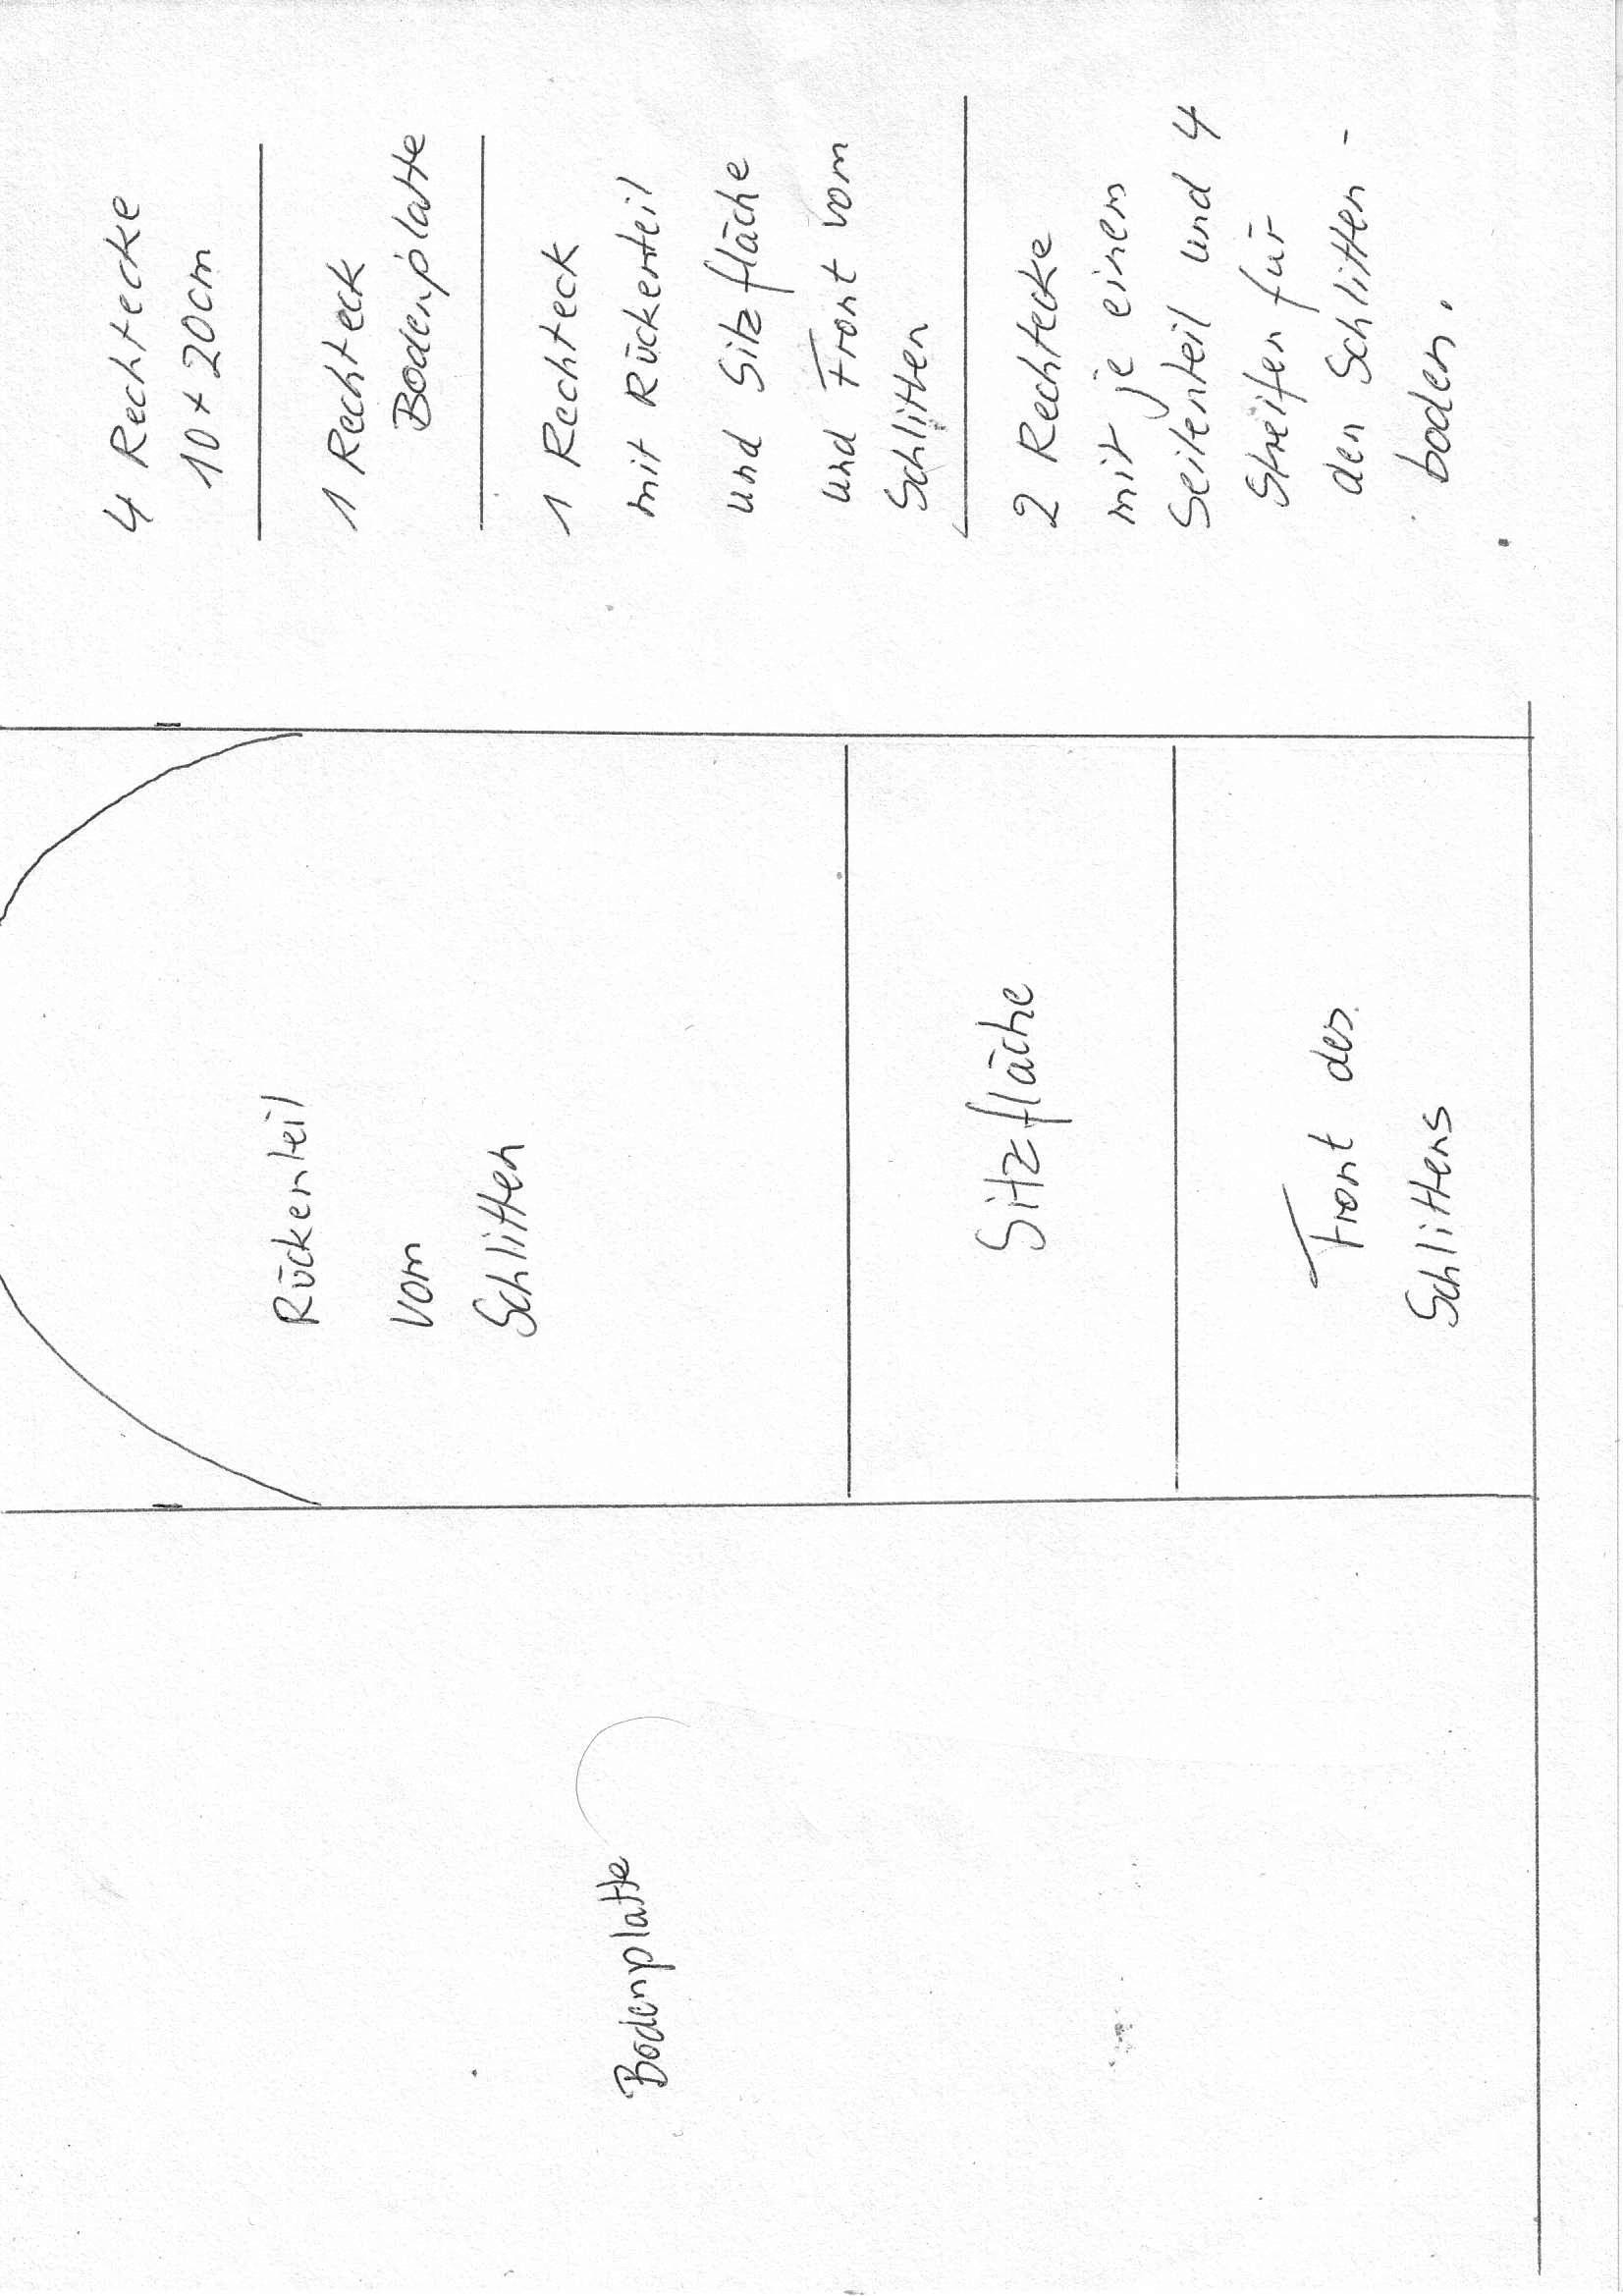 4 Rechtecke
10 x 20cm
1 Rechteck
Bodenplatte
1 Rechteck
mit Rückenteil
und Sitzfläche
und Front vom
Schlitten
2 Rechtecke
mit je einem
Seitenteil und 4
Streifen für
den Schlitten-
boden.
Rückenteil
vom
Schlitten
Sitzfläche
Front des
Schlittens
Bodenplatte